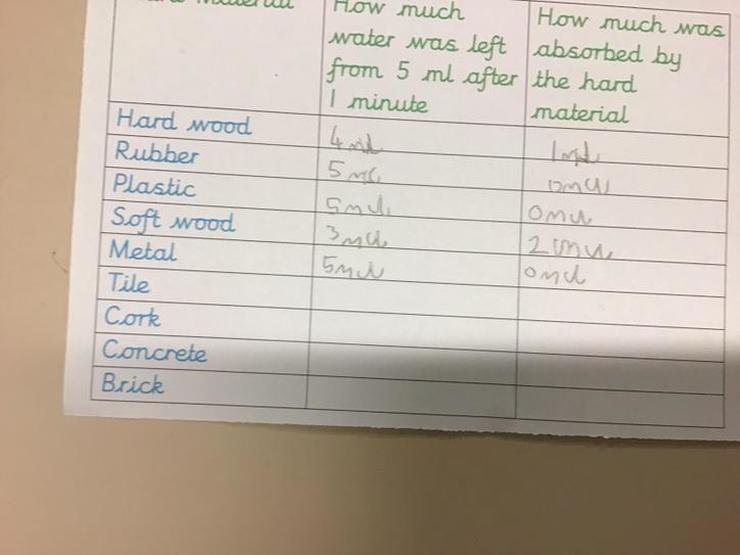 How much
water was left
from 5 ml after
1 minute
How much was
absorbed by
the hard
material
Hard wood 4ml 1ml
Rubber 5ml 0ml
Plastic 5ml 0ml
Soft wood 3ml 2ml
Metal 5ml 0ml
Tile
Cork
Concrete
Brick